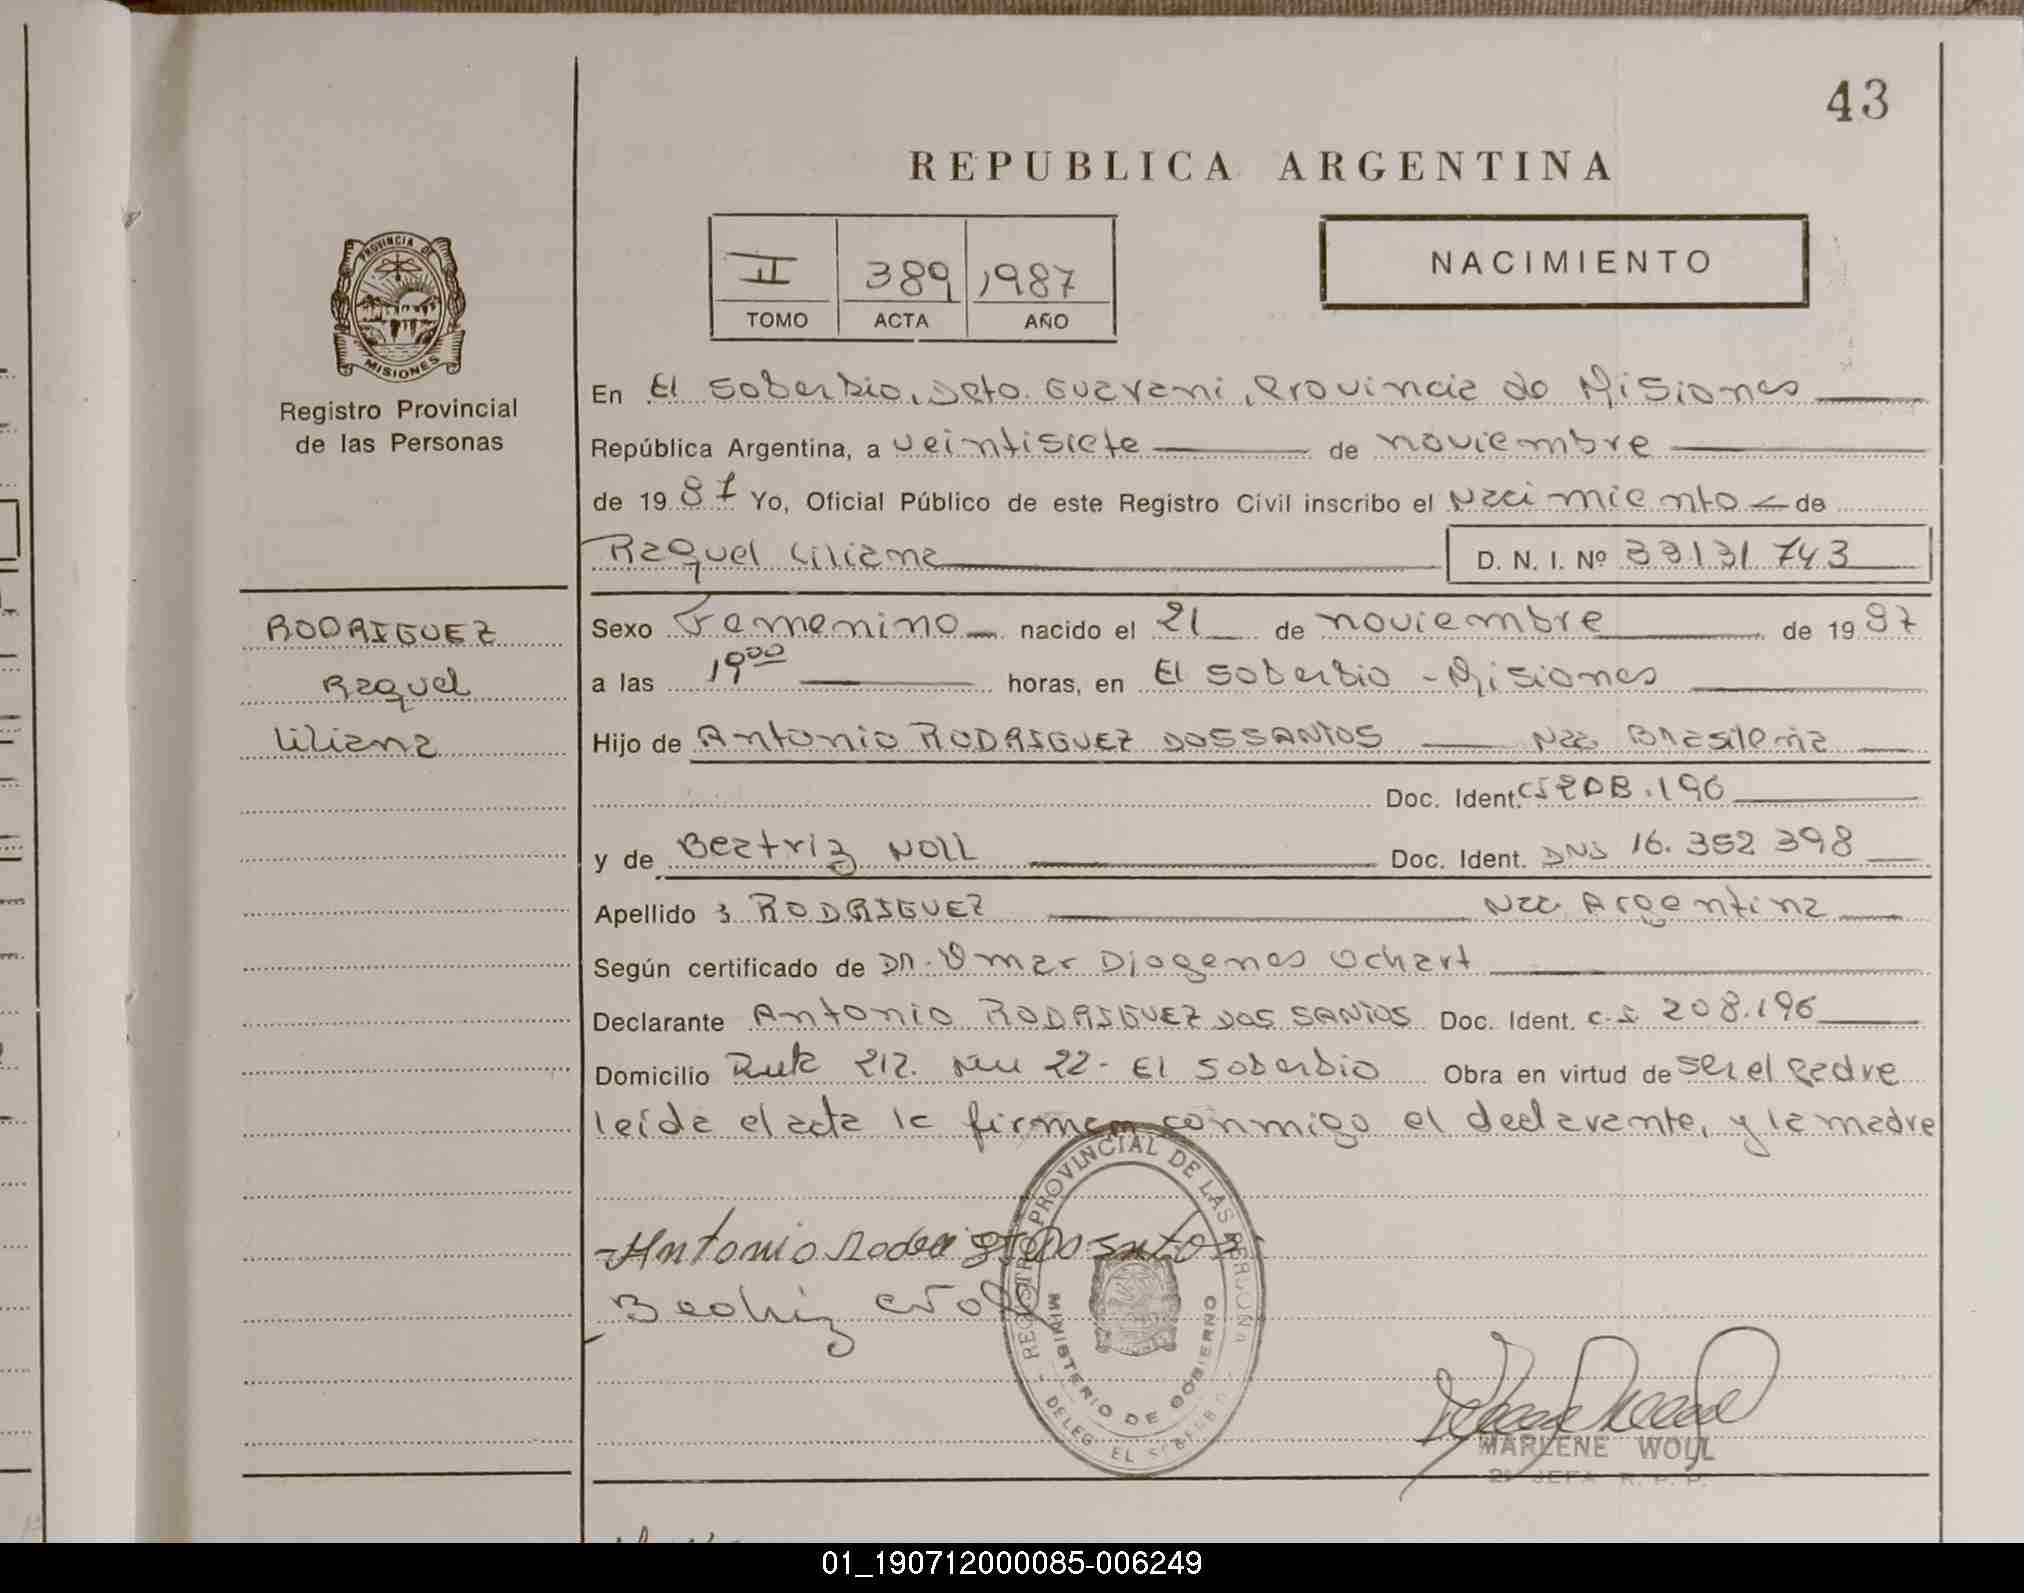 43
REPUBLICA ARGENTINA
II 389 1987
TOMO ACTA AÑO
NACIMIENTO
PROVINCIA DE
MISIONES
Registro Provincial
de las Personas
RODRIGUEZ
Raquel
Liliana
En El Soberbio, Dpto. Guarani, Provincia de Misiones
República Argentina, a veintisiete de noviembre
de 1987 Yo, Oficial Público de este Registro Civil inscribo el Nacimiento de
Raquel Liliana D. N. I. Nº 33131 743
Sexo Femenino nacido el 21 de noviembre de 1987
a las 19 00 horas, en El Soberbio - Misiones
Hijo de Antonio RODRIGUEZ DOSSANTOS Nac Brasileña
Doc. Ident. CI 208.196
y de Beatriz NOLL Doc. Ident. DNI 16.352 398
Apellido RODRIGUEZ Nac. Argentina
Según certificado de DR. Omar Diogenes Ochart
Declarante Antonio RODRIGUEZ DOS SANTOS Doc. Ident. C.I. 208.196
Domicilio Ruta 212. 22 - El Soberbio Obra en virtud de ser el padre
leída el acta la firman conmigo el declarante, y la madre
Antonio dos santos
Beatriz Noll
REGISTRO PROVINCIAL DE LAS PERSONAS
MINISTERIO DE GOBIERNO
- DELEG. EL SOBERBIO -
MARLENE WOLL
2º JEFA R. P. P.
01_190712000085-006249